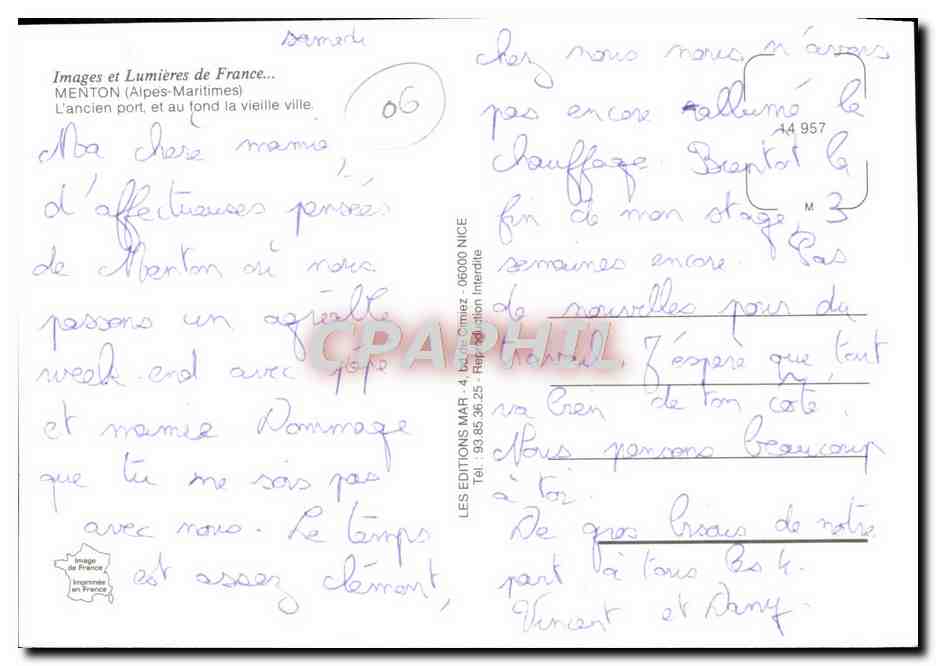 samedi
Images et Lumières de France...
MENTON (Alpes-Maritimes)
L'ancien port, et au fond la vieille ville.
06
Ma chère mamie,
d'affectueuses pensées
de Menton où nous
passons un agréable
week-end avec pépé
et mamie Dommage
que tu ne sois pas
avec nous. Le temps
est assez clément,
Image
de France
Imprimée
en France
LES EDITIONS MAR - 4, bd de Cimiez - 06000 NICE
Tél. : 93.85.36.25 - Reproduction Interdite
CPAPHIL
14 957
M
chez nous nous n'avons
pas encore rallumé le
chauffage. Bientôt la
fin de mon stage, 3
semaines encore. Pas
de nouvelles pour du
travail. J'espère que tout
va bien de ton côté.
Nous pensons beaucoup
à toi.
De gros bisous de notre
part à tous les 4.
Vincent et Dany.